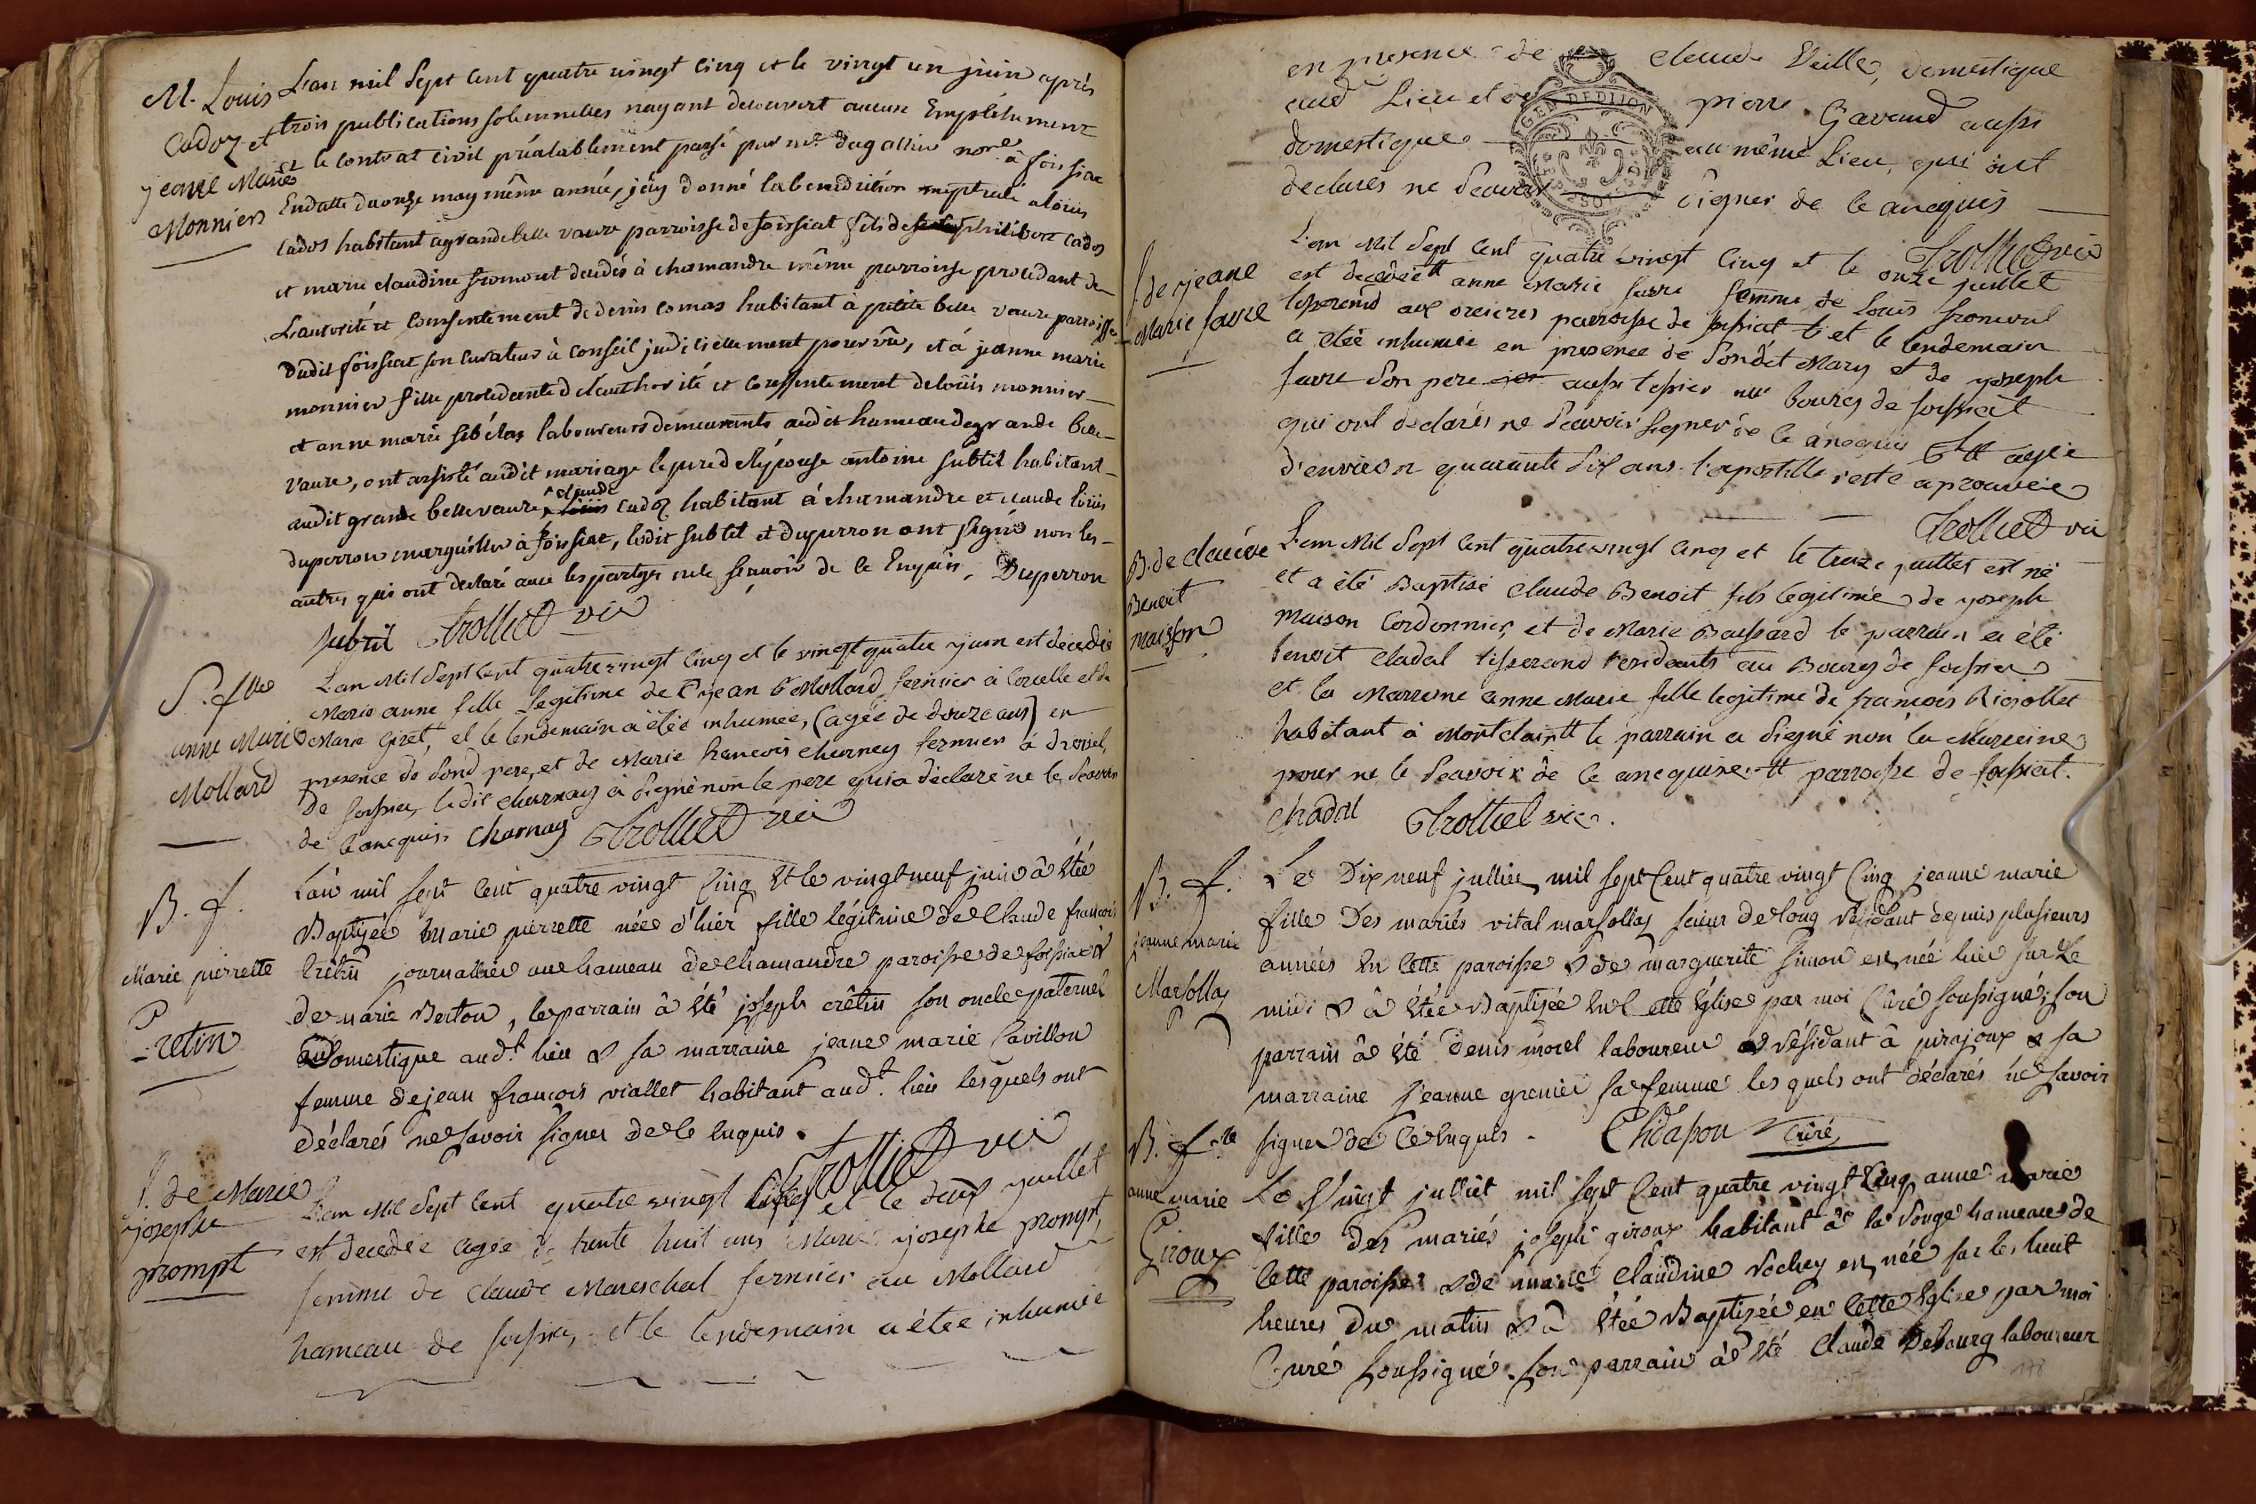 M. Louis
Cadoz et
jeane Marie
Monnier
L'an mil Sept Cent quatre vingt Cinq et le vingt un juin après
trois publications solemnelles nayant decouvert aucun Empêchement
et le contrat civil préalablement passé par me. dagallier nore. à foissiat
En datte du onze may même année, jay donné la benediction nuptiale a loüis
Cados habitant a grande belle vavre parroisse de foissiat fils de philibert Cados
et marie claudine fromont decedés à chamandre même parroisse procedant de
L'autorité et Consentement de denis comas habitant à petite belle vavre parroisse
dudit foissiat son curateur à conseil judiciellement pourvû, et à jeanne marie
monnier fille procedante de l'authorité et Consentement de loüis monnier
et anne marie sibélas laboureurs demeurants audit hameau de grande belle
vavre, ont assisté audit mariage le pere de l'épouse antoine subtil habitant
audit grande bellevavre, claude Cadoz habitant à chamandre et claude loüis
duperron marguillier à foissiat, ledit subtil et duperron ont signé non les
autres qui ont declaré avec les parties ne le sçavoir de ce Enquis. Duperron
Subtil Trolliet vic
S. flle
anne Marie
Mollard
L'an Mil Sept Cent quatre vingt Cinq et le vingt quatre juin est decedée
Marie anne fille Legitime de jean Mollard fermier à Corcelle et de
Marie Giret, et le lendemain a étée inhumée, (agée de douze ans) en
presence de Sond pere, et de Marie francois charnay fermier à
de foissiat, ledit charnay a signé non le pere qui a declaré ne le Scavoir
de ce anequis. Charnay Trolliet vic
B. f.
Marie pierrette
Cretin
L'an mil sept Cent quatre vingt Cinq Et le vingt neuf juin â Eté
Baptisée Marie pierrette née d'hier fille légitime de Claude françois
Crêtin journallier au hameau de chamandre paroisse de foissiat &
de marie Berton, le parrain â Eté joseph crêtin son oncle paternel
Domestique aud.t lieu & sa marraine jeane marie Cavillon
femme de jean françois viallet habitant aud.t lieu lesquels ont
déclarés ne savoir signer de ce Enquis.
Trolliet vic
S. de Marie
josephe
prompt
L'an Mil Sept Cent quatre vingt Cinq et le deux juillet
est decedée agée de trente huit ans Marie josephe prompt
femme de Claude Mareschal fermier au Mollard
hameau de foissia, et le lendemain a étée inhumée
en presence de Claude Veille, domestique
aud Lieu et de pierre Gavand aussi
domestique au même Lieu, qui ont
declarés ne Scavoir signer de ce anequis
Trolliet vic
GEN DE DIJON
S. de jeane
Marie favre
L'an Mil Sept Cent quatre vingt Cinq et le onze juillet
est decedée tt anne Marie favre femme de Louis fromont
tisserend aux parroisse de foissiat et le lendemain
a étée inhumée en presence de Sondit Mary et de joseph
favre son pere aussi tessier au bourg de foissiat
qui ont declarés ne Scavoir signer de ce anequis tt agée
d'environ quarante Six ans. l'apostille reste aprouvée
Trolliet vic
B. de claude
Benoit
maisson
L'an Mil Sept Cent quatre vingt Cinq et le treize juillet est né
et a été Baptisé claude Benoit fils legitime de joseph
Maison Cordonnier, et de Marie Boissard le parrain a été
benoit Chadal tisserand residents au Bourg de foissia
et la Marrene anne Marie fille legitime de francois Rigollet
habitant à Montclair tt le parrain a Signé non la Marreine
pour ne le Scavoir de ce anequise. tt parroisse de foissiat.
Chadal Trolliet vic.
B. f.
jeanne marie
Marsollay
Le Dix neuf julliet mil sept Cent quatre vingt Cinq jeanne marie
fille Des mariés vital marsollay scieur de long résidant depuis plusieurs
années En Cette paroisse & de marguerite simon est née hier sur le
midi & â Etée Baptisée En Cette Eglise par moi Curé soussigné; son
parrain â Eté Denis morel laboureur résidant â pirajoux & sa
marraine jeanne grenier sa femme lesquels ont déclarés ne savoir
signer de Ce Enquis. Chidapon Curé
B. flle
anne marie
Giroux
Le Vingt julliet mil sept Cent quatre vingt Cinq anne marie
fille Des mariés joseph giroux habitant â la hameau de
Cette paroisse & de marie Claudine vochey est née sur les huit
heures du matin & â Etée Baptisée en Cette Eglise par moi
Curé soussigné. son parrain â Eté Claude Debourg laboureur
178